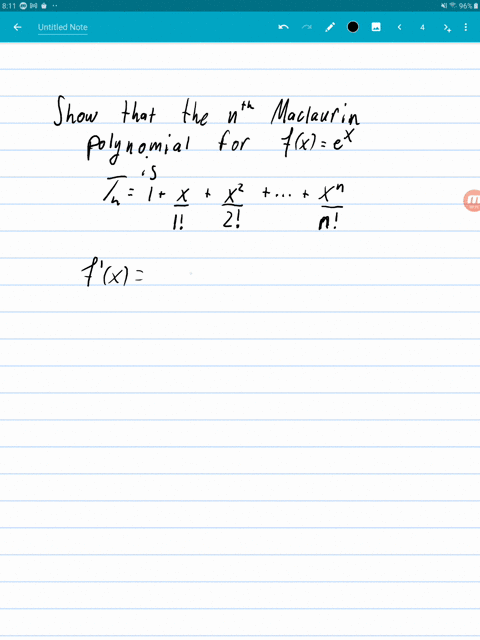 8:11
96%
Untitled Note
4
Show that the nᵗʰ Maclaurin
polynomial for f(x) = eˣ
is
Tₙ = 1 + x/1! + x²/2! + ... + xⁿ/n!
f'(x) =